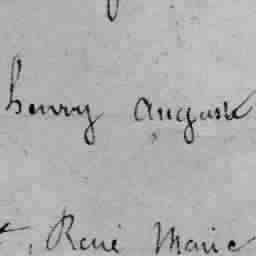 henry Auguste
René Marie